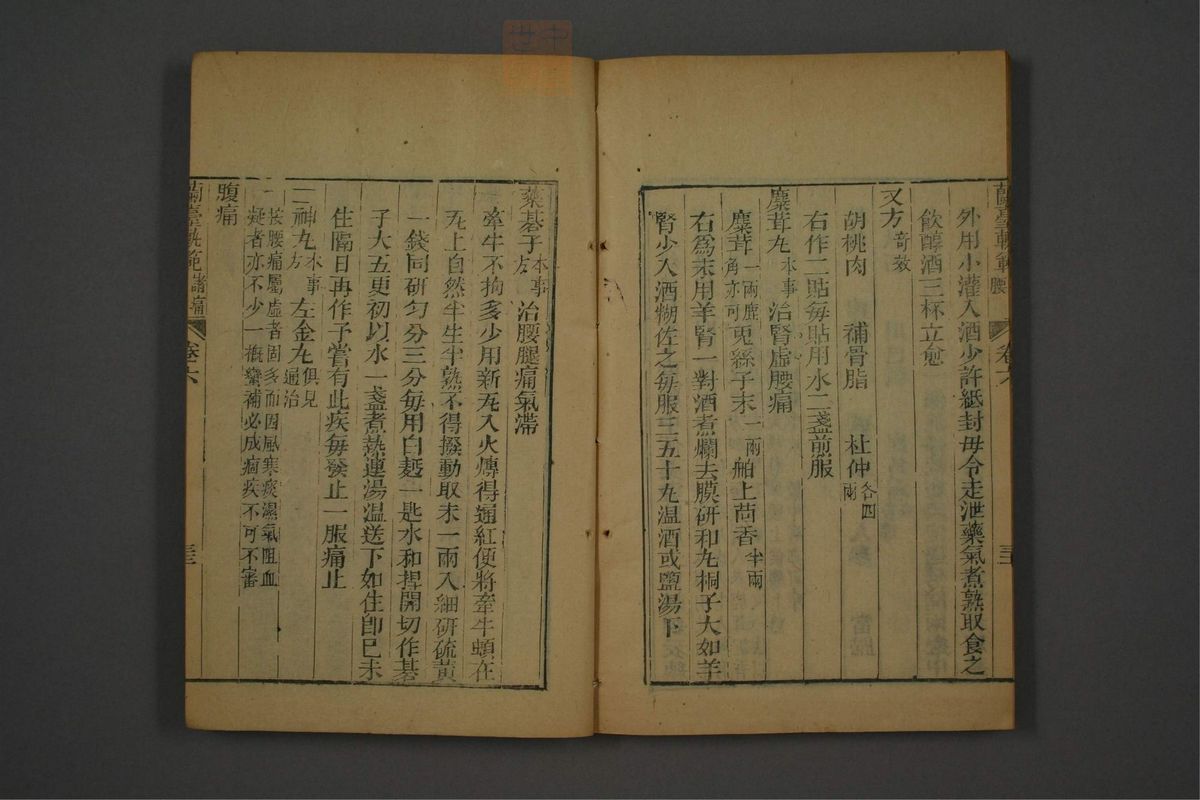 蘭臺軌範 腰 卷六
外用小灌入酒少許紙封毋令走泄藥氣煮熟取食之
飲醇酒三杯立愈
又方奇效
胡桃肉 補骨脂 杜仲各四兩
右作二貼每貼用水二盞煎服
麋茸丸本事 治腎虛腰痛
麋茸一兩鹿角亦可 兎絲子末一兩 舶上茴香半兩
右爲末用羊腎一對酒煮爛去膜研和丸桐子大如羊
腎少入酒糊佐之每服三五十丸温酒或鹽湯下
藥碁子本事方 治腰腿痛氣滯
牽牛不拘多少用新瓦入火煿得通紅便將牽牛頓在
瓦上自然半生半熟不得撥動取末一兩入細研硫黃
一錢同研匀分三分每用白麪一匙水和捍開切作碁
子大五更初以水一盞煮熟連湯温送下如住卽已未
住隔日再作予嘗有此疾每發止一服痛止
二神丸本事方 左金丸俱見通治
按腰痛屬虛者固多而因風寒痰濕氣阻血
凝者亦不少一概蠻補必成痼疾不可不審
腹痛
蘭臺軌範 諸痛 卷六